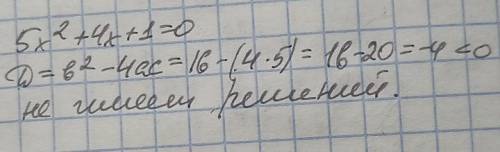 5x²+4x+1=0
D=b²-4ac=16-(4·5)=16-20=-4<0
не имеет решений.